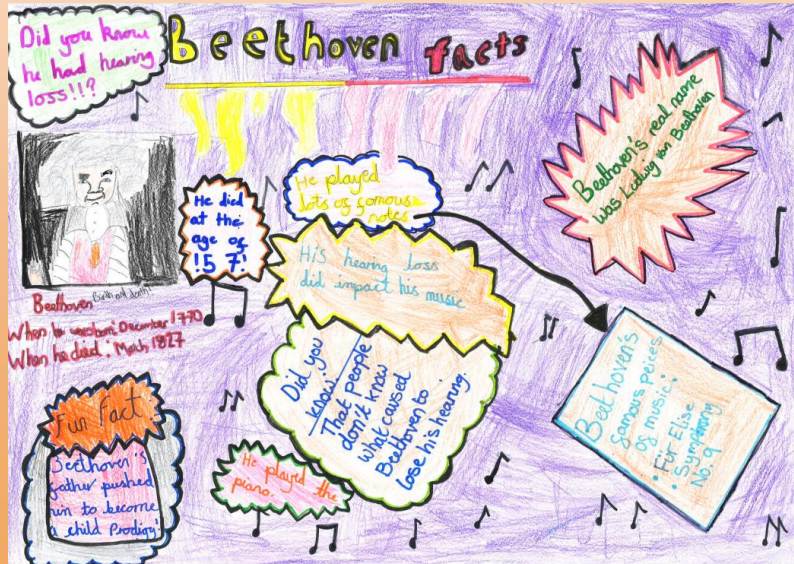 Did you know
he had hearing
loss!!?
Beethoven facts
Beethoven's real name
was Ludwig van Beethoven
He played
lots of famous
notes
He died
at the
age of
!5 7!
His hearing loss
did impact his music
Beethoven (Birth and death)
When he was born: December 1770
When he died: March 1827
Did you
know
That people
don't know
what caused
Beethoven to
lose his hearing.
Beethoven's
famous peices
of music:
• Für Elise
• Symphony
No. 9
Fun Fact:
Beethoven's
father pushed
him to become
a child Prodigy
He played the
piano.